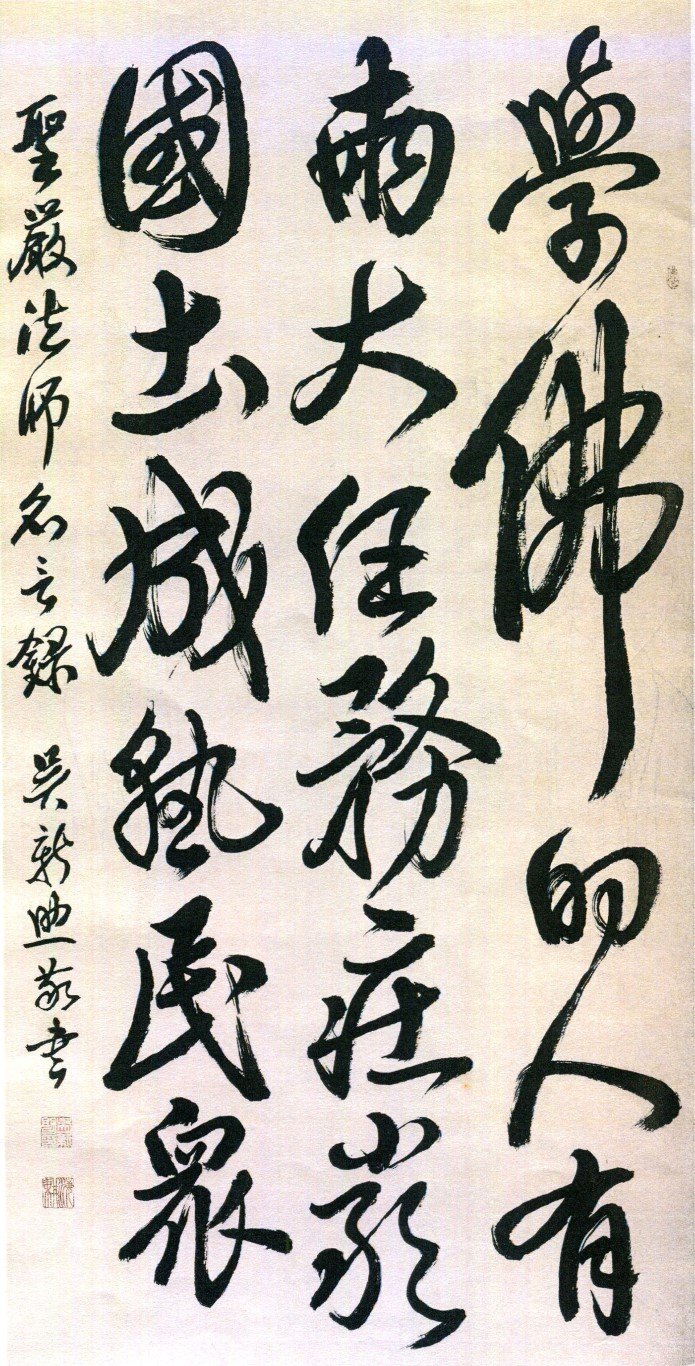 學佛的人有
兩大任務莊嚴
國土成熟民眾
聖嚴法師名言錄 吳新 敬書